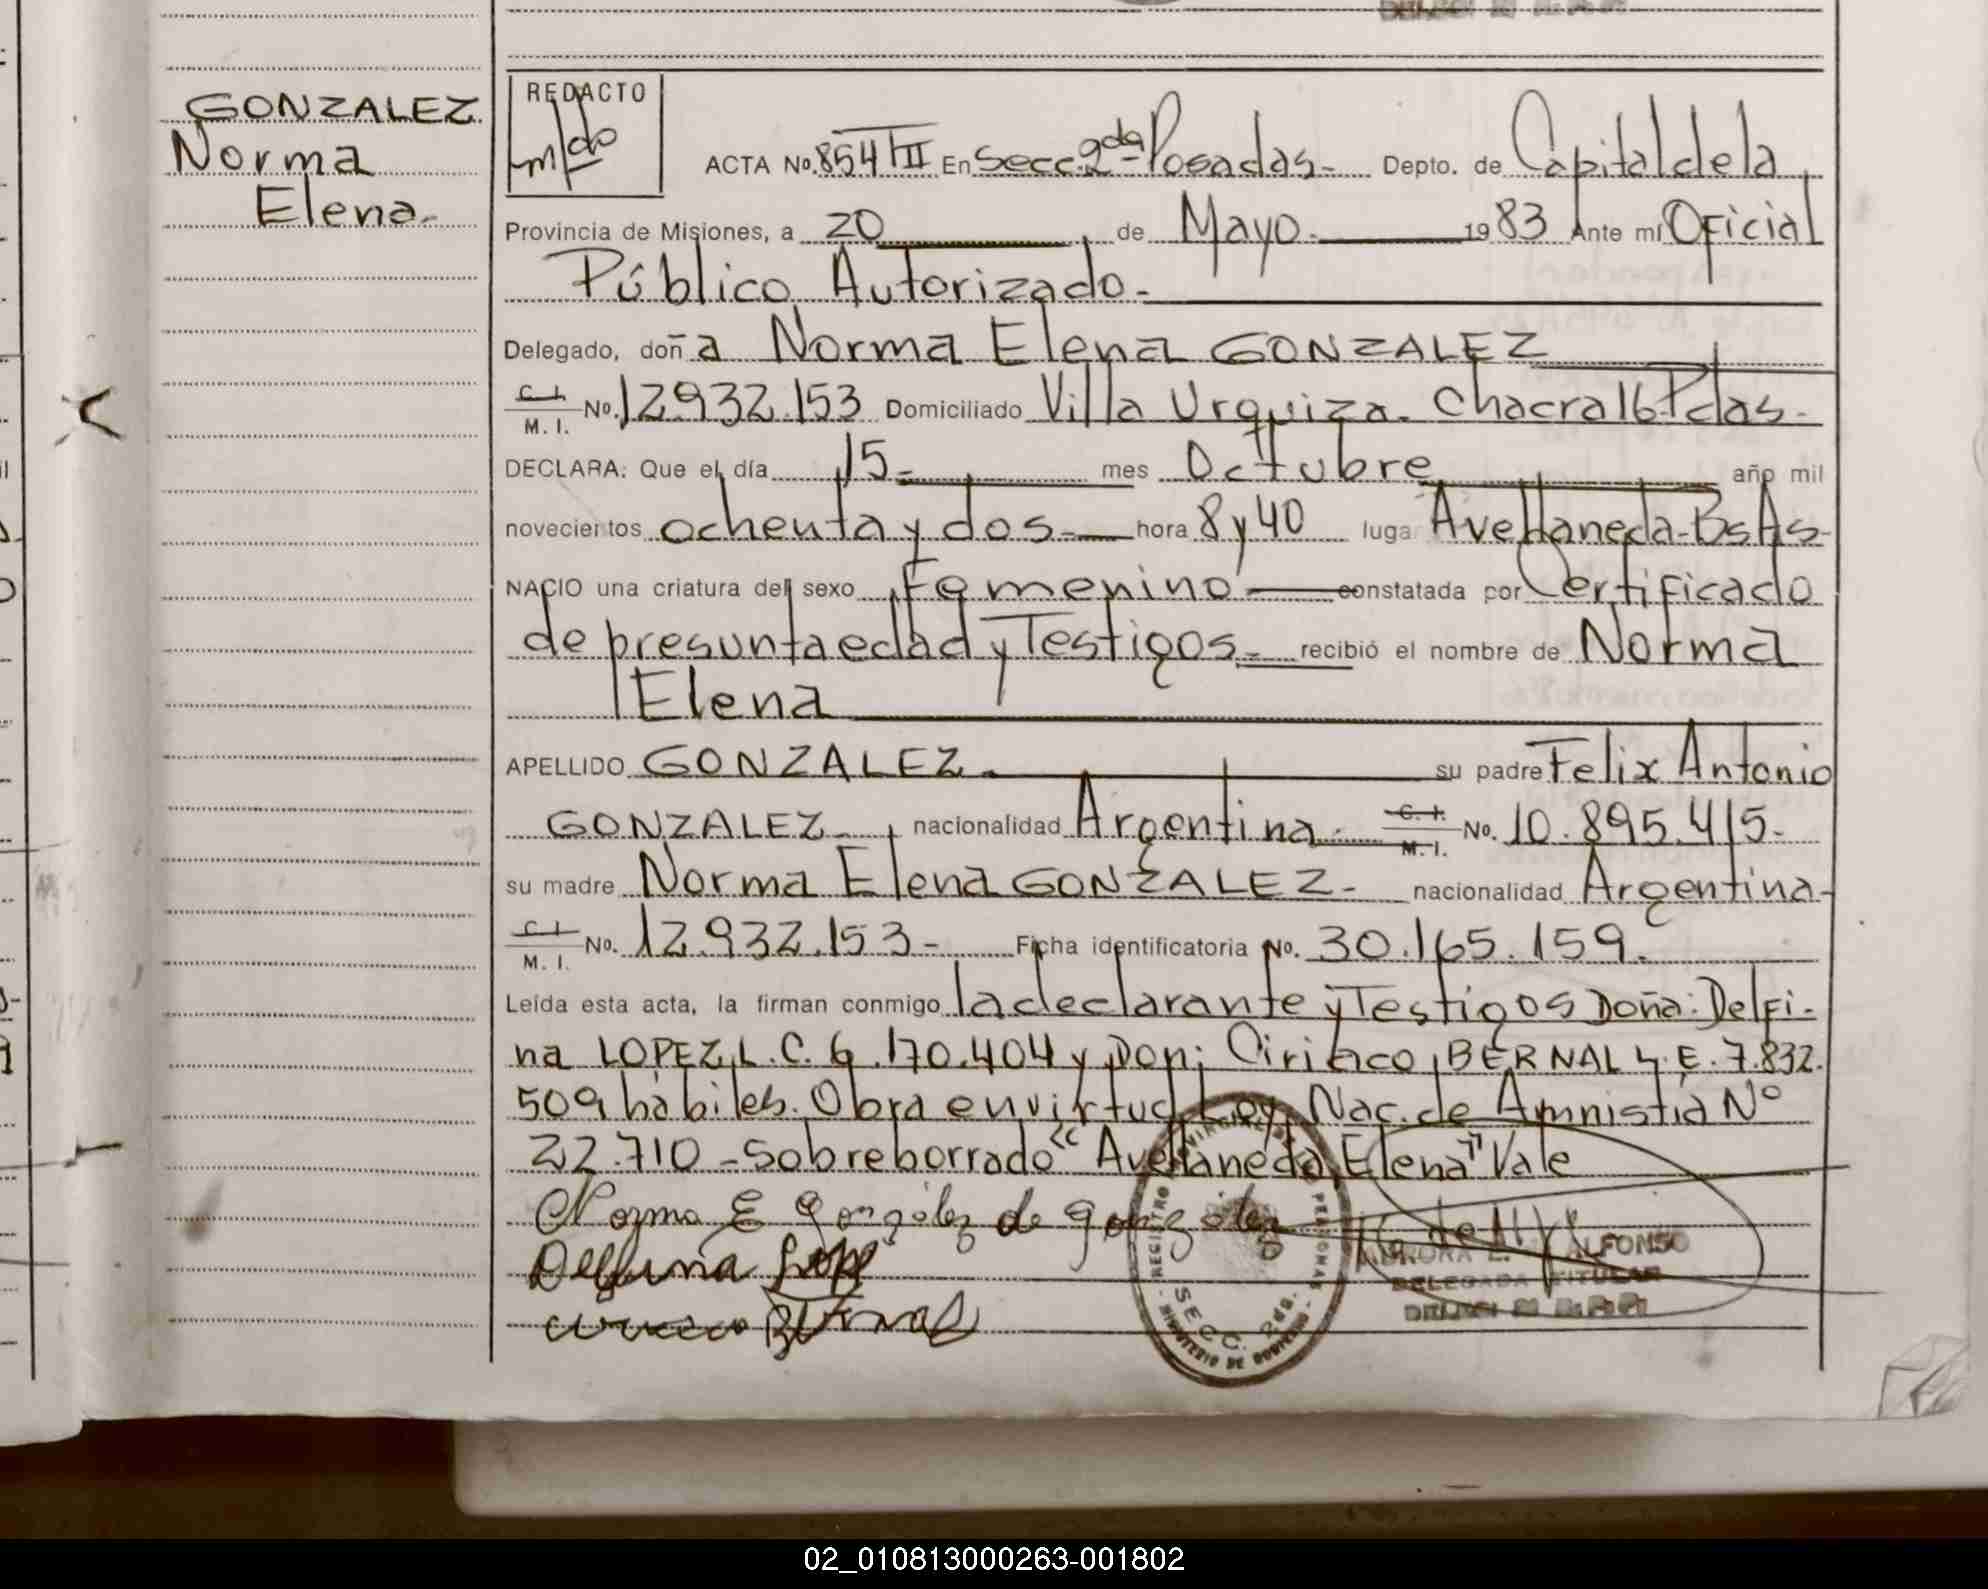 GONZALEZ
Norma
Elena-
REDACTO
ACTA No. 854 TIII En Secc. 2da Posadas.- Depto. de Capital de la
Provincia de Misiones, a 20 de Mayo.- 1983 Ante mí Oficial
Público Autorizado.-
Delegado, doña Norma Elena GONZALEZ
C. I. / M. I. No. 12.932.153 Domiciliado Villa Urquiza. Chacra 16-Pdas.-
DECLARA: Que el día 15- mes Octubre año mil
novecientos ochenta y dos.- hora 8 y 40 lugar Avellaneda-Bs As-
NACIO una criatura del sexo Femenino constatada por Certificado
de presunta edad y Testigos.- recibió el nombre de Norma
Elena
APELLIDO GONZALEZ.- su padre Felix Antonio
GONZALEZ.- nacionalidad Argentina.- C. I. / M. I. No. 10.895.415.-
su madre Norma Elena GONZALEZ.- nacionalidad Argentina-
C. I. / M. I. No. 12.932.153- Ficha identificatoria No. 30.165.159.
Leída esta acta, la firman conmigo la declarante y Testigos Doña: Delfi-
na LOPEZ, L.C. 6.170.404 y Don: Ciriaco BERNAL L.E. 7.832.
509 hábiles. Obra en virtud Ley Nac. de Amnistia Nº
22.710 - Sobreborrado "Avellaneda, Elena" Vale
Norma E González de González
Delfina Lopz
ciriaco Bernal
REGISTRO PROVINCIAL DE PERSONAS
SECC. 2da.
MINISTERIO DE GOBIERNO
AURORA E. ALFONSO
DELEGADA TITULAR
02_010813000263-001802